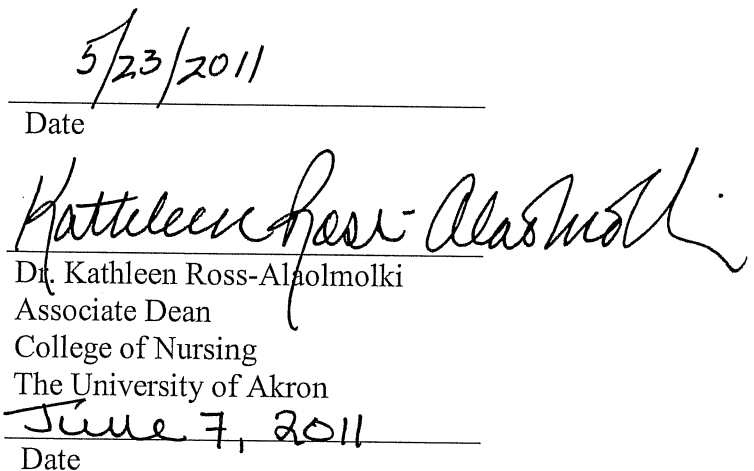 5/23/2011
Date
Kathleen Ross-Alaolmolki
Dr. Kathleen Ross-Alaolmolki
Associate Dean
College of Nursing
The University of Akron
June 7, 2011
Date